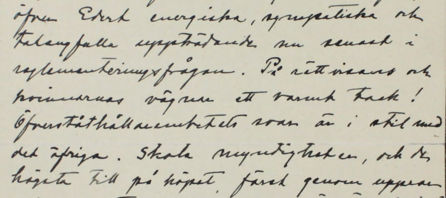 öfver Edert energiska, sympatiska och
talangfulla uppträdande nu senast i
reglementeringsfrågan. På rättvisans och
kvinnornas vägnar ett varmt tack!
Öfverståthållareembetets svar är i stil med
det öfriga. Skola myndigheter, och de
högsta till på köpet, först genom